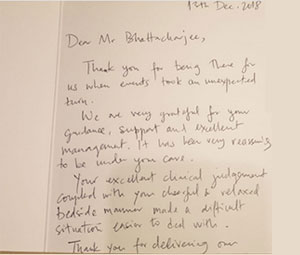 13th Dec. 2018
Dear Mr Bhattacharjee,
Thank you for being there for
us when events took an unexpected
turn.
We are very grateful for your
guidance, support and excellent
management. It has been very reassuring
to be under your care.
Your excellent clinical judgement
coupled with your cheerful & relaxed
bedside manner made a difficult
situation easier to deal with.
Thank you for delivering our